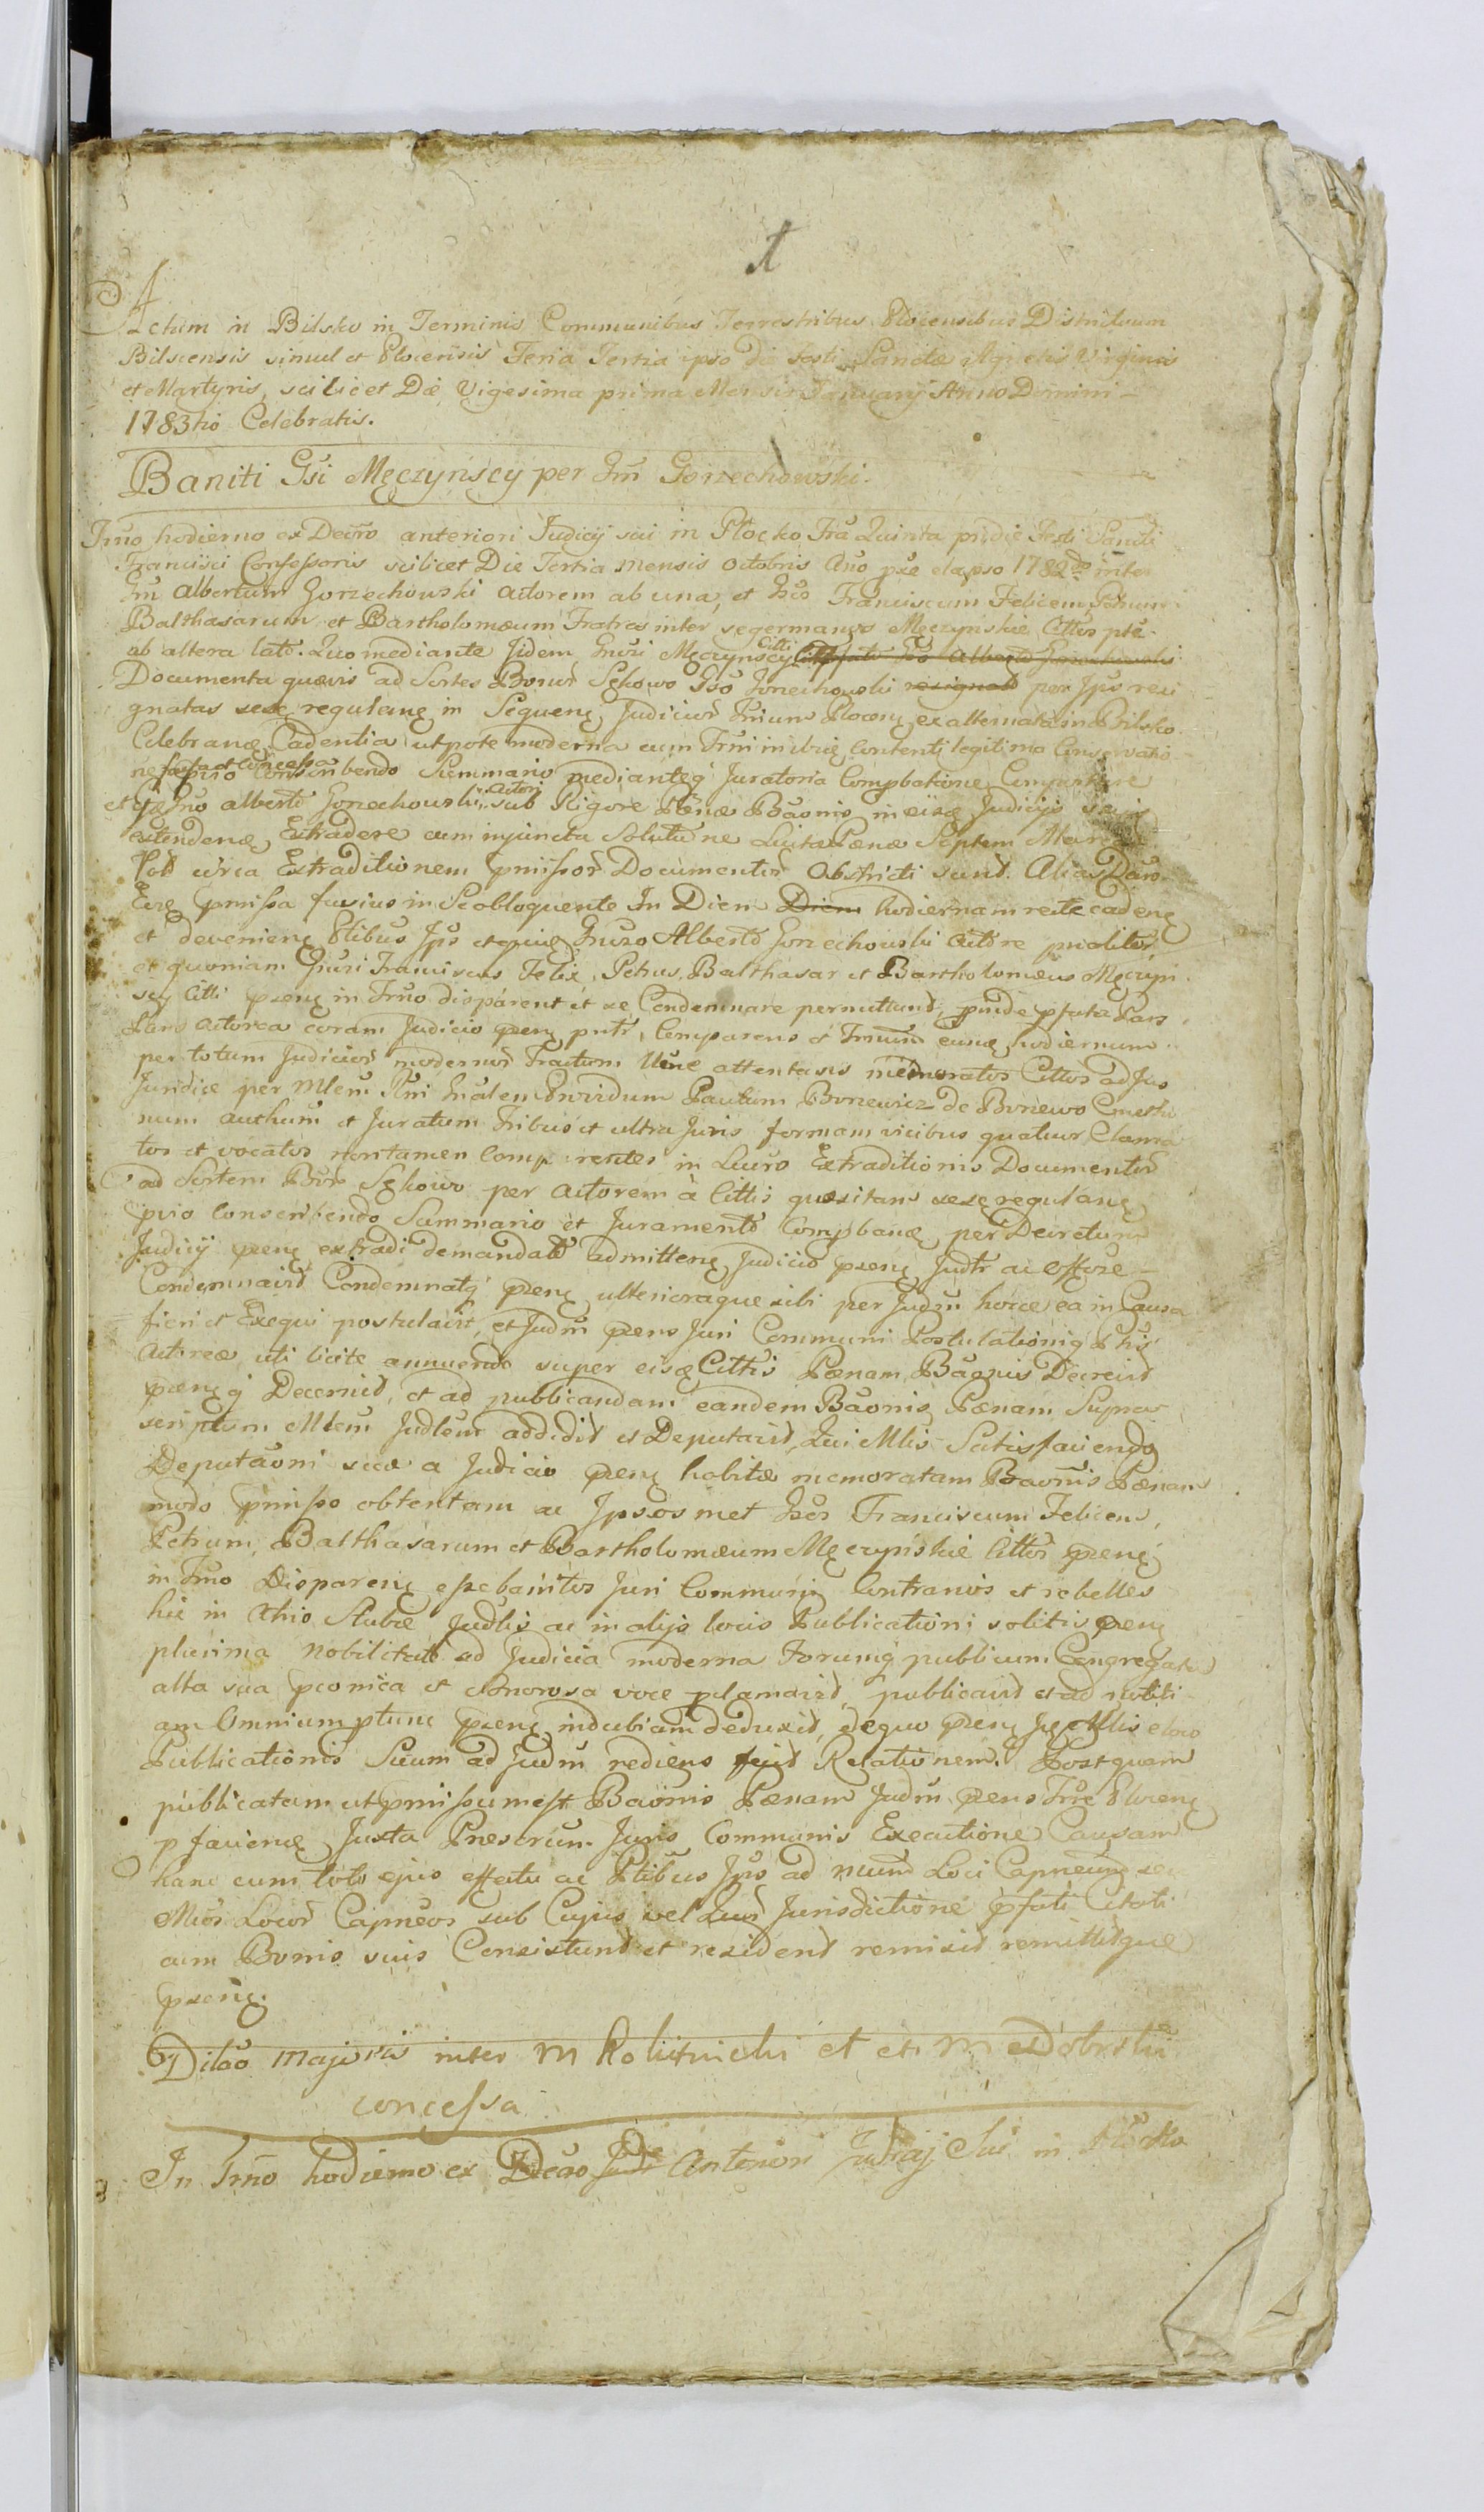 1
Actum in Bilsko in Terminis Communibus Terrestribus Plocensibus Districtuum
Bilscensis simul et Plocensis Feria Tertia ipso die Festi Sanctæ Agnetis Virginis
et Martyris, scilicet Die Vigesima prima Mensis Januarij Anno Domini
1783tio Celebratis.
Baniti Gsi Męczynscy per Gm Gorzechowski.
Tmo hodierno ex Decro anteriori Judicij sui in Płocko Fria Quinta pridie Festi Sancti
Francisci Confessoris scilicet Die Tertia mensis Octobris Ano pxe elapso 1782do inter
Gm Albertum Gorzechowski Actorem ab una, et Gsos Franciscum Felicem Petrum
Balthasarum et Bartholomæum Fratres inter se germanos Męczynskie Cittos pte
ab altera lato. Quo mediante Jidem Gnrsi Męczynscy Citti
Documenta quævis ad Sortes Bonor Sękowo Gso Gorzechowski resignato per Jpsos resi
gnatas sese regulanę in Sequenę Judicior Tnium Plocenę ex alternata in Bilsko
Celebranę Cadentia utpote moderna cum Trni inibię Contenti legitima Conservatio
ne facta et concessa Conscribendo Summario medianteq Juratoria Compbatione Comportare
et Gnso Alberto Gorzechowski Actori sub Rigore Pænæ Baonis in eisdę Judicijs suis
extendenæ, Extradere cum injuncta Solutione Luitæ Pænæ Septem Marcar
Pol circa Extraditionem pmissor Documentor Obstricti sunt. Alias Daro
Ecrę pmissa fusius in Se obloquente In Diem Diem hodiernam recte cadenę
et devenienę Ptibus Jps etquię Gnrso Alberto Gorzechowski Actore
et quoniam Gnrsi Franciscus Felix, Petrus, Balthasar et Bartholomæus Męczyn
scy Citti psenę in Trno disparent et se Condemnare permittunt, pinde pfata Pars
Pars Actorea coram Judicio psenę pntr, Comparens et Tmnum eundę hodiernum
per totum Judicior modernor Tractum bene attentans memoratos Cittos ad Jus
Juridice per Mlem Rni Gnalem Providum Paulum Boniewicz de Boniewo Cmeth
num authum et Juratum Tribus et ultra Juris formam vicibus quatuor Clama
tos et vocatos non tamen Comparentes in Lucro Extraditionis Documentor
ad Sortem Bor Sękowo per Actorem à Cittis quæsitam sese regulanę
pvio Conscribendo Summario et Juramento Compbanę per Decretum
Judicij psenę extradi demandator admittenę Judicio psenę Judtr ac Offre
Condemnavit Condemnatq psenę ulterioraque sibi per Judm hocce ea in Causa
fieri et Exequi postulavit, et Judm psens Juri Communi Postulationiq Ptis
Actoreæ uti licite annuendo super eisdę Cittis Pænam Baonis Decrevit
psenęq Decernit, et ad publicandam eandem Baonis Pænam Supra
scriptum Mlem Judlem addidit et Deputavit, Qui Mlis Satisfaciendo
Deputaoni suæ a Judicio psenę habitæ memoratam Baonis Pænam
modo pmisso obtentam ac Jpsosmet Gsos Franciscum Felicem,
Petrum, Balthasarum et Bartholomæum Męczynskie Cittos psenę
in Tmo Disparenę esse banitos Juri Communi Contrarios et rebelles
hic in Othio Stubæ Judlis ac in alijs locis Publicationi solitis psenę
plurima Nobilitate ad Judicia moderna Forumq publicum Congregata
alta sua pconica et Sonorosa voce pclamavit, publicavit et ad notiti
am Omnium ptunc psenę indubiam deduxit, dequo psenę Jpę Mlis eloco
Publicationis Suum ad Judm rediens fecit Relationem. Postquam
publicatam ut pmissum est Baonis Pænam Judm psens Trre Plocenę
pfacienę Justa Præscrum Juris Communis Executione Causam
hanc cum toto ejus effectu ac Ptibus Jps ad mun Loci Capneum seu
Mros Locor Capneos sub Cujus vel Quor Jurisdictione pfati Citati
cum Bonis suis Consistunt et resident remisit remittitque
psenę.
Dilao Majoris inter M Kolitnicki et et M
concessa
In Trno hodierno ex Decro Judi Anteriori Judicij Sui in Płocko